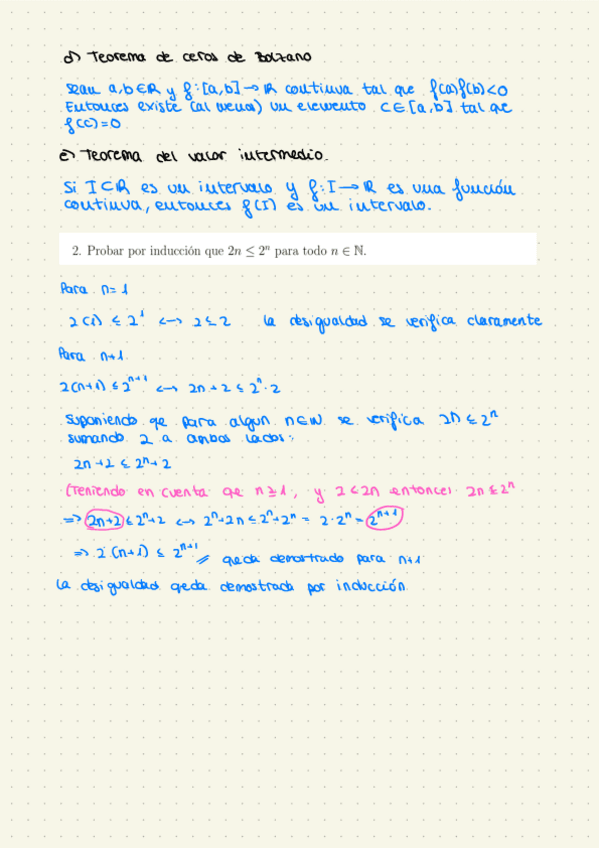 d) Teorema de ceros de Bolzano
Sean a,b∈ℝ y f:[a,b]→ℝ continua tal que f(a)f(b)<0
Entonces existe (al menos) un elemento c∈[a,b] tal que
f(c)=0
e) Teorema del valor intermedio.
Si I⊂ℝ es un intervalo y f:I→ℝ es una función
continua, entonces f(I) es un intervalo.
2. Probar por inducción que 2n ≤ 2ⁿ para todo n ∈ ℕ.
Para n=1
2(1) ≤ 2¹ <-> 2≤2 la desigualdad se verifica claramente
Para n+1
2(n+1) ≤ 2ⁿ⁺¹ <-> 2n+2 ≤ 2ⁿ·2
Suponiendo qe para algun n∈ℕ se verifica 2n ≤ 2ⁿ
sumando 2 a ambos lados:
2n+2 ≤ 2ⁿ+2
(Teniendo en cuenta qe n≥1, y 2<2n entonces 2n≤2ⁿ
=> 2n+2 ≤ 2ⁿ+2 <-> 2ⁿ+2n ≤ 2ⁿ+2ⁿ = 2·2ⁿ = 2ⁿ⁺¹
=> 2(n+1) ≤ 2ⁿ⁺¹ // queda demostrado para n+1
La desigualdad qeda demostrada por inducción.